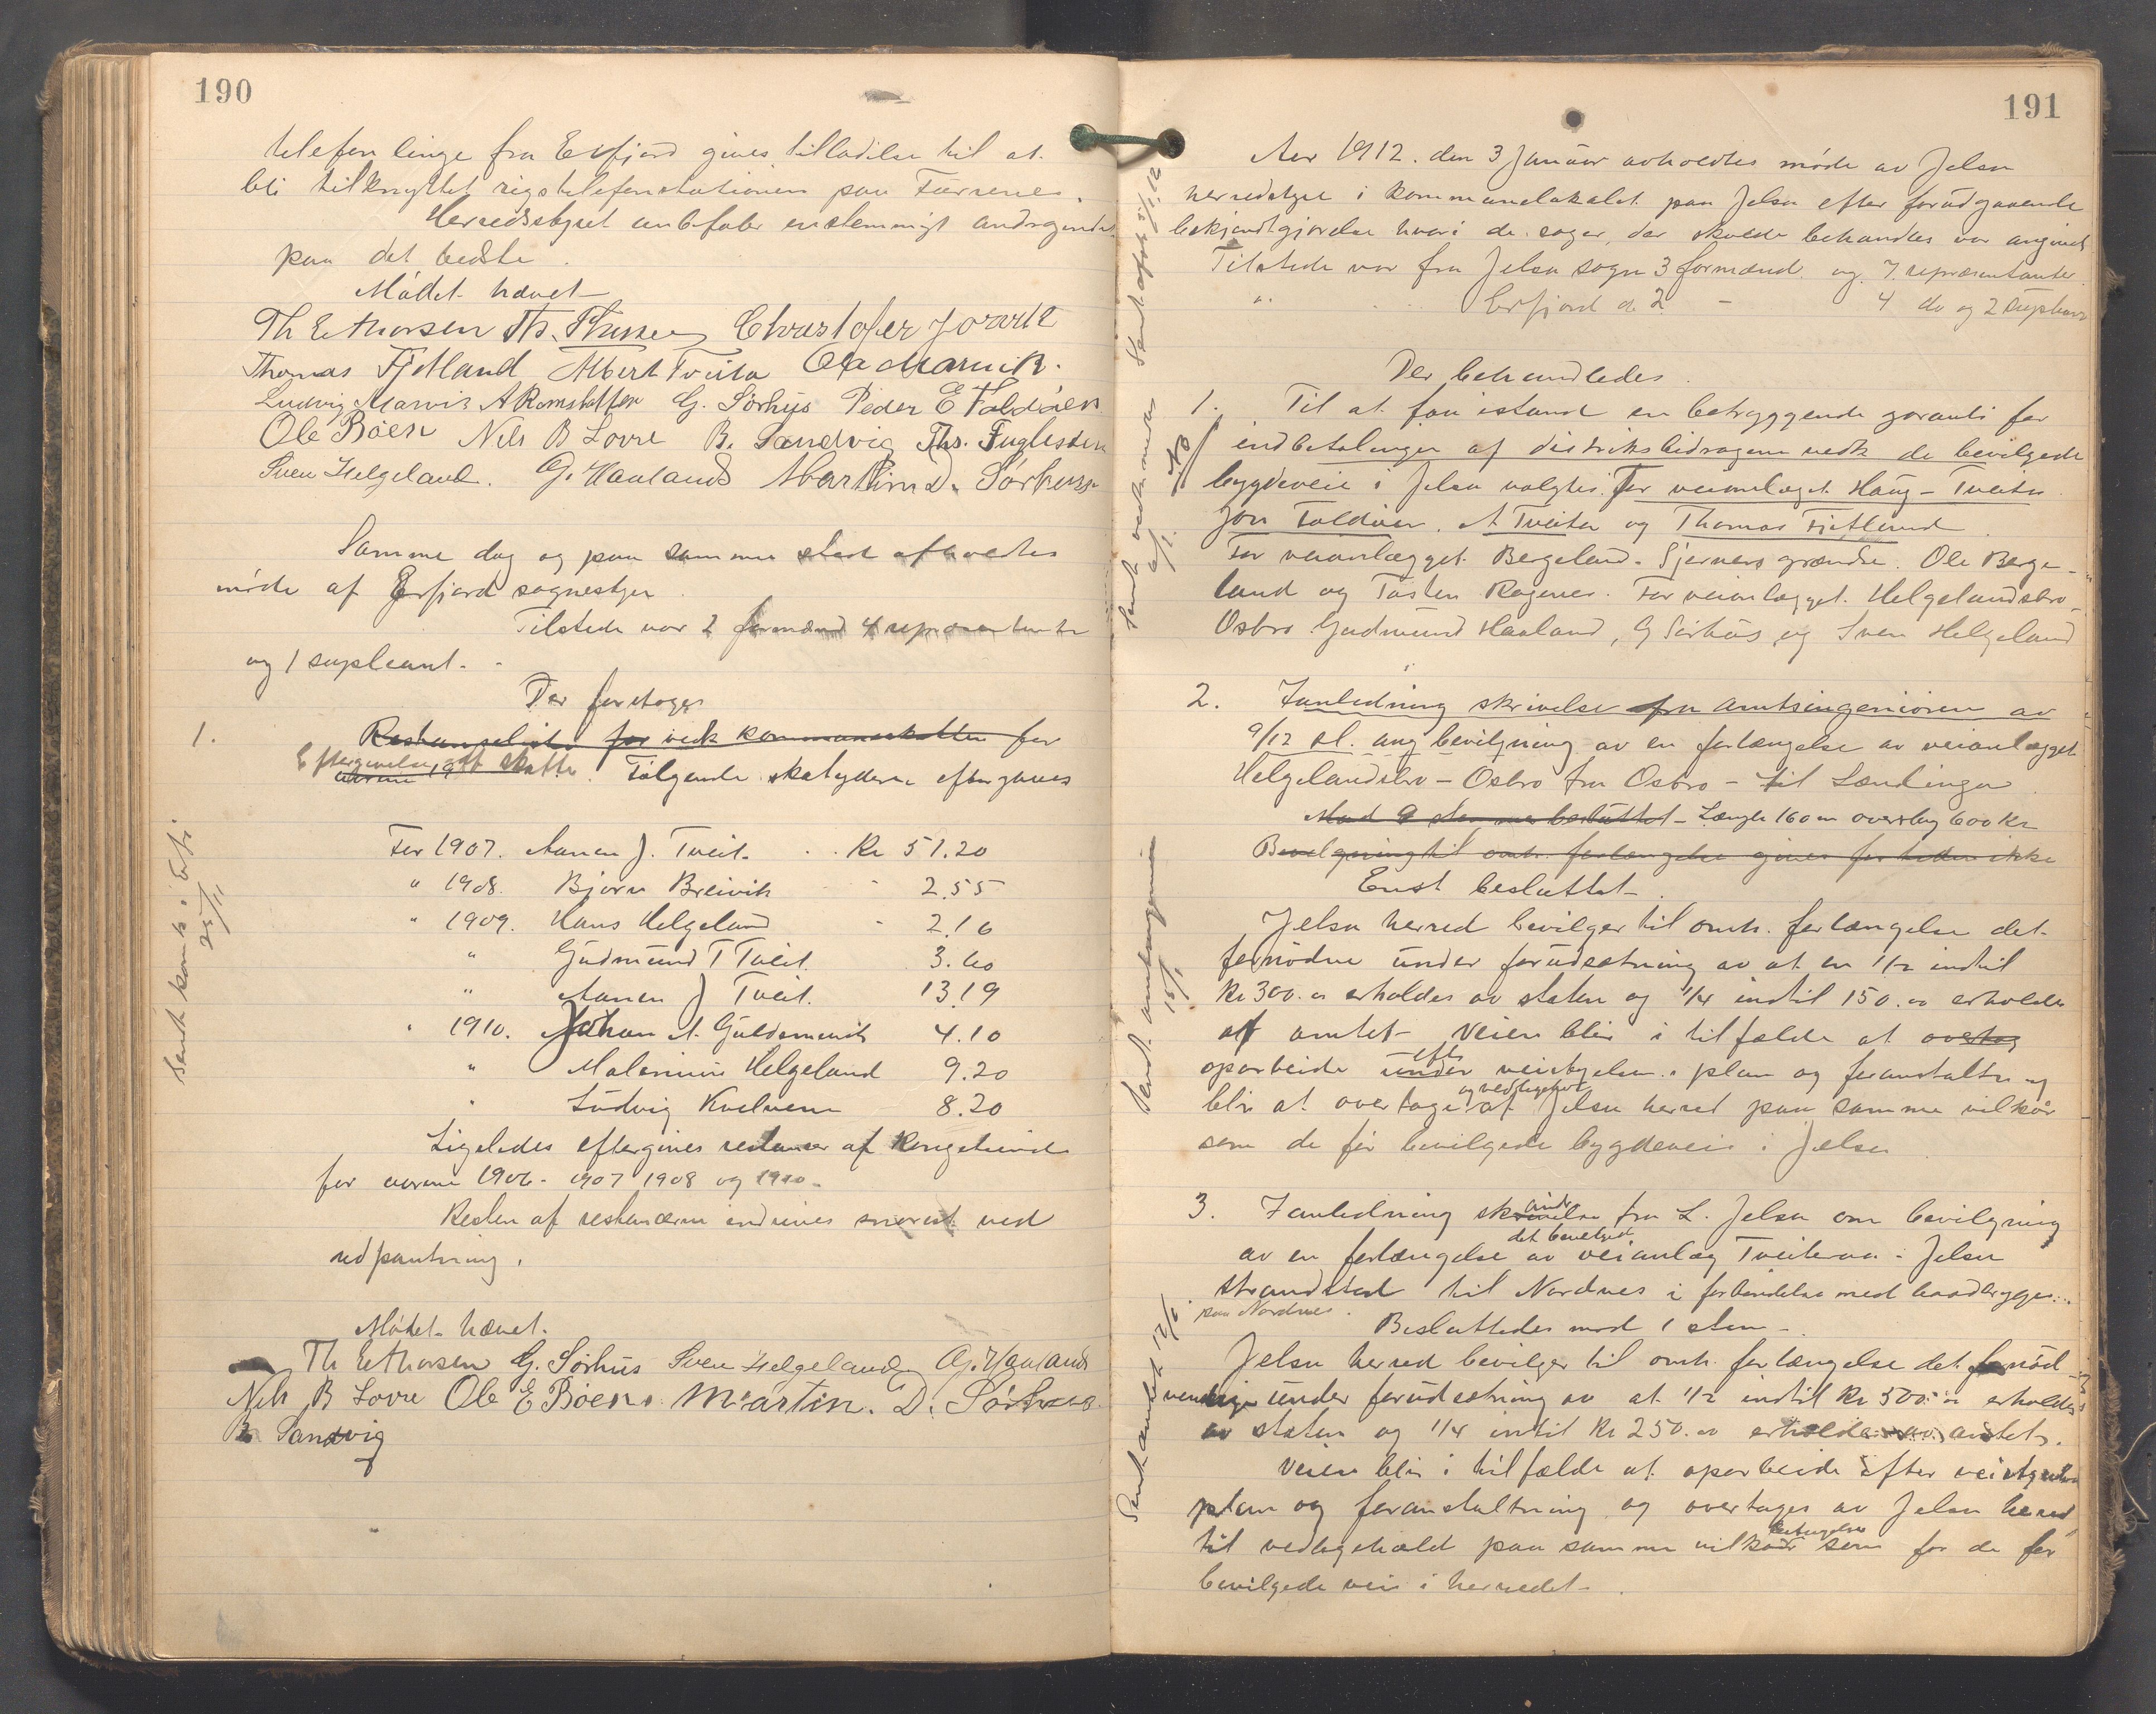 190
telefonlinge fra Erfjord gives tilladelse til at
bli tilknyttet rigstelefonstationen paa Farsenes.
Herredsstyret anbefaler enstemmigt andragendet
paa det bedste.
Mødet hævet
Th Ethorsen Th. Christofer
Thomas Fjetland Albert Tveita Ola Marvik.
Ludvig Marvik A Ramstatter G. Sørhus Peder E Foldøen
Ole Bøen Nils B Lovre B. Sandvig Ths. Fuglesten
Sven Helgeland. G. Haaland Martin D. Sørhus
Samme dag og paa samme sted afholdtes
møde af Erfjord sognestyre
Tilstede var 2 formænd 4 repræsentanter
og 1 supleant.
Der foretoges
1. Restanseliste for vedk kommuneskatten for
Eftergivelse af skatte. Følgende skatydere eftergives
aarene 19
For 1907. Aanen J. Tveit. Kr 51.20
" 1908. Bjørn Breivik - 2.55
" 1909. Hans Helgeland - 2.16
" Gudmund T Tveit. 3.60
" Aanen J Tveit. 13.19
" 1910. Johan A. Guldsmed 4.10
" Malenius Helgeland 9.20
" Ludvig Kvelven 8.20
Ligeledes eftergives restanser af
for aarene 1906- 1907 1908 og 1910.
Resten af restanserne indrives snarest ved
udpantning.
Mødet hævet.
Th Ethorsen G. Sørhus Sven Helgeland G. Haaland
Nils B Lovre Ole E Bøen Martin. D. Sørhus.
B Sandvig
Sendt kom.k. i Erfj.
25/11
191
Aar 1912. den 3 Januar avholdtes møde av Jelsa
herredstyre i kommunelokalet paa Jelsa efter forudgaaende
bekjendtgjørelse hvori de sager, der skulde behandles var angivet
Tilstede var fra Jelsa sogn 3 formænd og 7 repræsentanter.
" Erfjord do 2 - 4 do og 2 supleant
Der behandledes.
1. Til at faa istand en betryggende garanti for
indbetalingen af distriksbidragene vedk de bevilgede
bygdeveie i Jelsa valgtes. For veianlæget Haug - Tveita
Jon Foldøen. A Tveita og Thomas Fjetland
For veianlægget Bergeland - Hjernes grændse. Ole Berge-
land og Tosten Ragnes. For veianlægget. Helgelandsbro-
Osbro Gudmund Haaland, G Sørhus og Sven Helgeland
2. I anledning skrivelse fra amtsingeniøren av
9/12 sl. ang bevilgning av en forlængelse av veianlægget
Helgelandsbro - Osbro fra Osbro - til Lændingen
Mod 9 stemmer besluttet - Længde 160 m overslag 600 kr
Bevilgning til omh. forlængelse gives for tiden ikke
Enst besluttet -
Jelsa herred bevilger til omh. forlængelse det
fornødne under forudsætning av at en 1/2 indtil
Kr 300.00 erholdes av staten og 1/4 indtil 150.00 erholdes
af amtet - Veien blir i tilfælde at overtag
oparbeide under efter veistyrelsen plan og foranstaltning
blir at overtage og vedligehold af Jelsa herred paa samme vilkår
som de før bevilgede bygdeveie i Jelsa
3. I anledning skrivelse andr fra L. Jelsa om bevilgning
av en forlængelse av det bevilgede veianlæg Tveiteraa - Jelsa
strandsted til Nordnes i forbindelse med baadbrygge
paa Nordnes.
Besluttedes mod 1 stem -
Jelsa herred bevilger til omh. forlængelse det fornød-
vendige under forudsætning av at 1/2 indtil Kr 500.00 erholdes
av staten og 1/4 indtil Kr 250.00 erholdes av amtet.
Veien blir i tilfælde at oparbeide efter veistyrelsen
plan og foranstaltning og overtages av Jelsa herred
til vedligehold paa samme vilkaar betingelser som for de før
bevilgede veie i herredet -
Sendt amtsingeniør
15/1
Sendt amtet 12/1